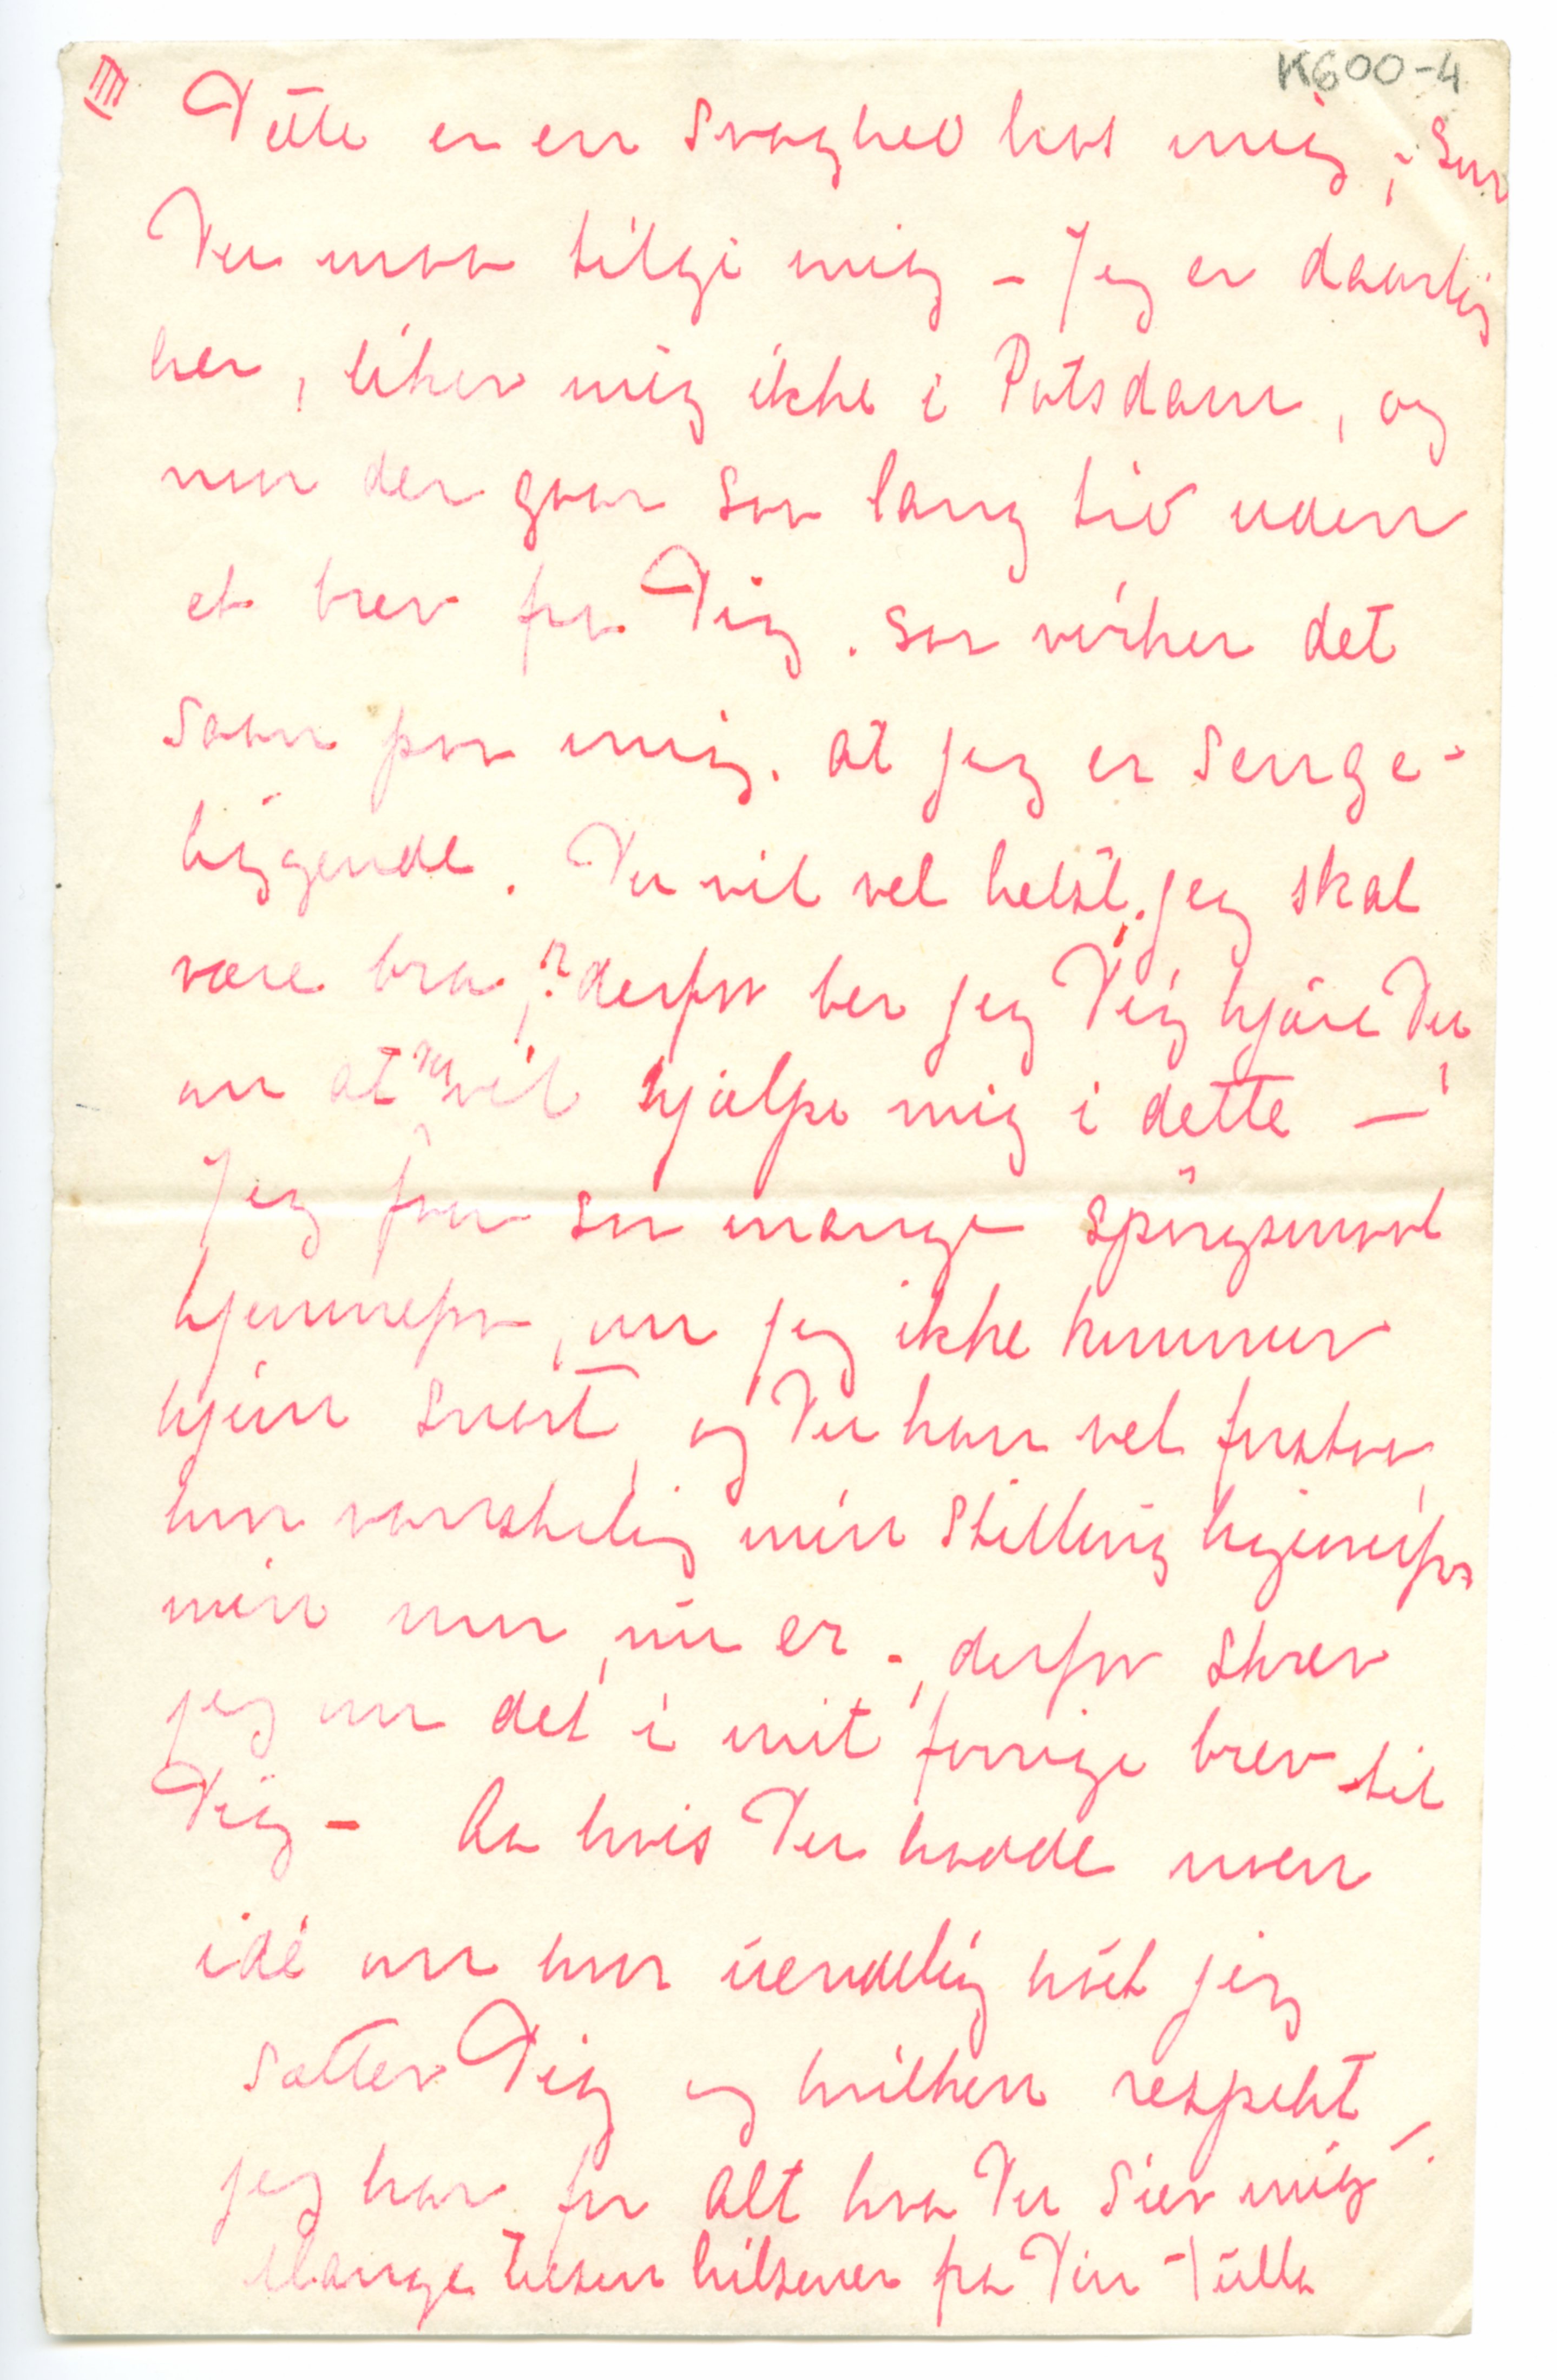 K600-4
IIII Dette er en svaghed hos mig, som
Du maa tilgi mig – Jeg er daarlig
her, liker mig ikke i Potsdam, og
naar der gaar saa lang tid uden
et brev fra Dig. saa virker det
saan paa mig. at jeg er senge-
liggende. Du vil vel helst, jeg skal
være bra,? derfor ber jeg Dig kjære Du
om at Du vil hjælpe mig i dette –!
Jeg faar saa mange spörgsmaal
hjemmefra, om jeg ikke kommer
hjem snart, og Du kan vel forstaa,
hvor vanskelig min stilling hjemmefra
min mor, nu er –, derfor skrev
jeg om det i mit forrige brev til
Dig – Aa hvis Du havde noen
idé om hvor uendelig höit jeg
sætter Dig og hvilken respekt
jeg har for alt hva Du sier mig –.
Mange tusen hilsener fra Din Tulla